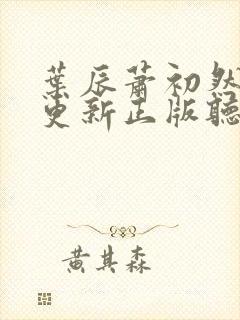 葉辰蕭初然
更新正版聽
黃其森